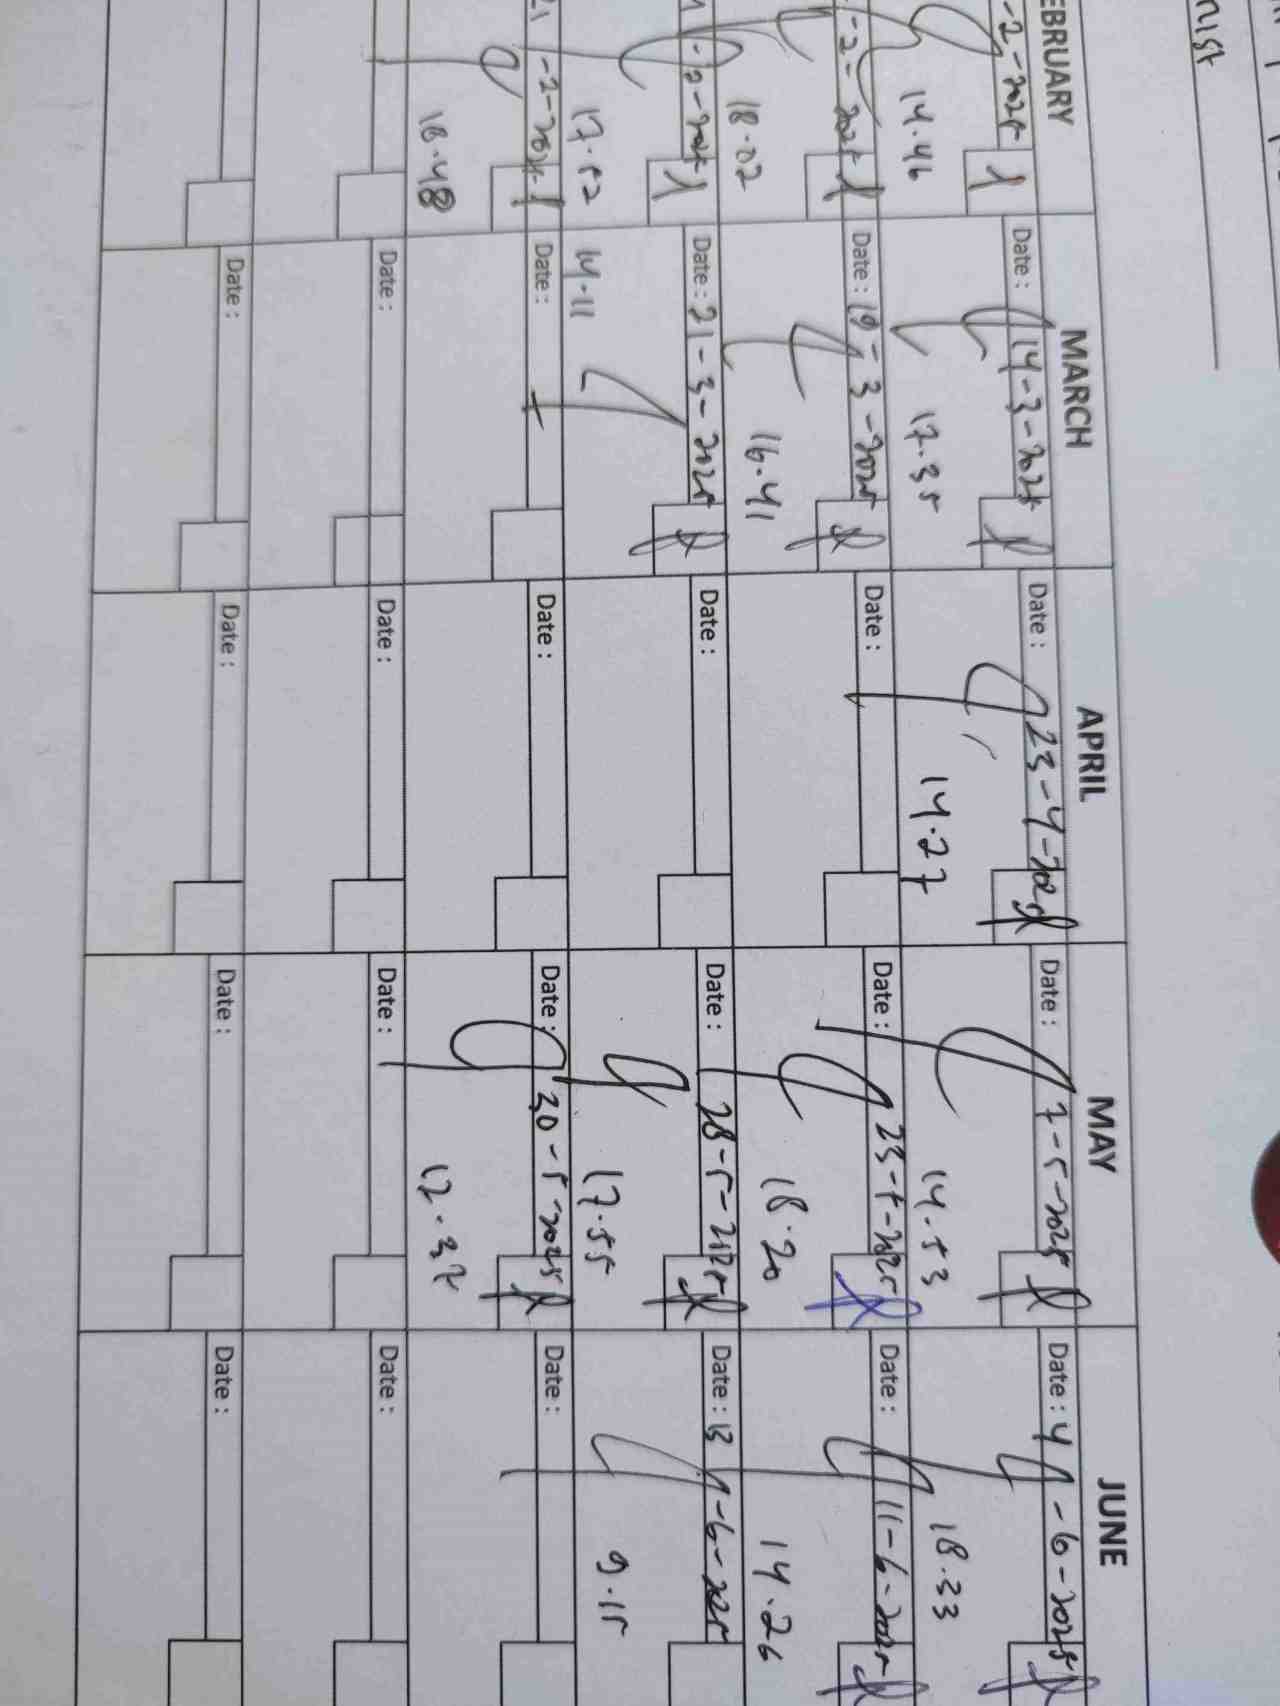 nist
EBRUARY MARCH APRIL MAY JUNE
-2-2025 Date : 14-3-2025 Date : 23-4-2025 Date : 7-5-2025 Date : 4-6-2025
14.46 17.35 14.27 14.53 18.33
-2-2025 Date : 19-3-2025 Date : Date : 23-5-2025 Date : 11-6-2025
18.02 16.41 18.20 14.26
-2-2025 Date : 21-3-2025 Date : Date : 28-5-2025 Date : 13-6-2025
17.52 14.11 17.55 9.15
21-2-2025 Date : Date : Date : 30-5-2025 Date :
18.48 17.37
Date : Date : Date : Date :
Date : Date : Date : Date :